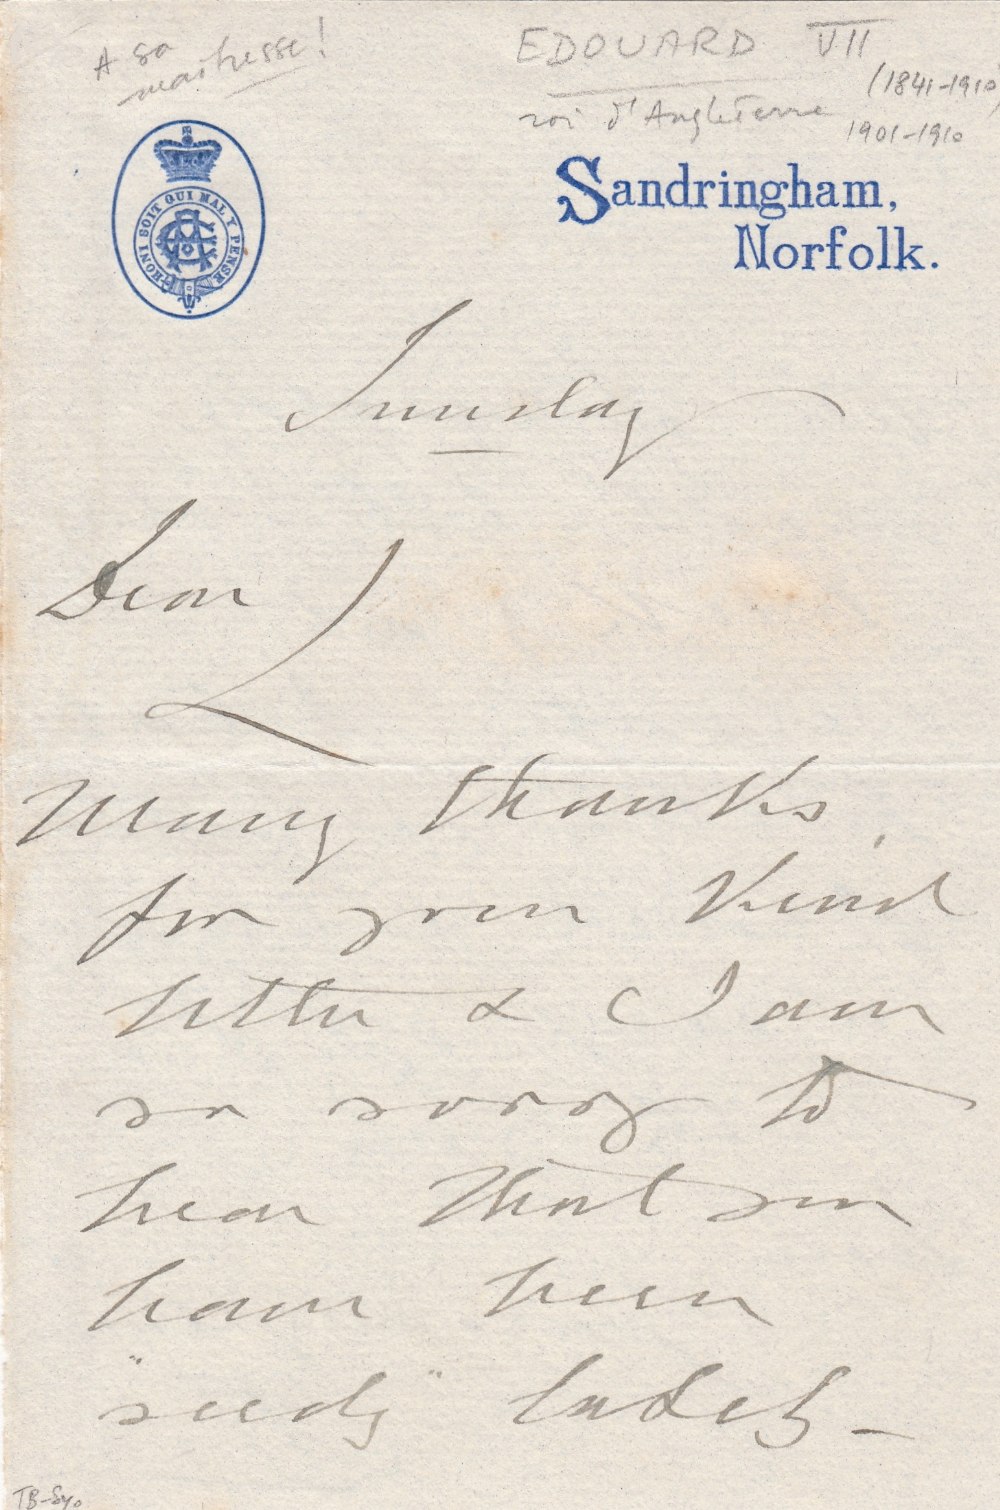 A sa
maitresse!
EDOUARD VII
(1841-1910)
roi d'Angleterre
1901-1910
HONI SOIT QUI MAL Y PENSE
Sandringham,
Norfolk.
Sunday
Dear L
Many thanks
for your kind
letter & I am
so sorry to
hear that you
have been
"seedy" lately –